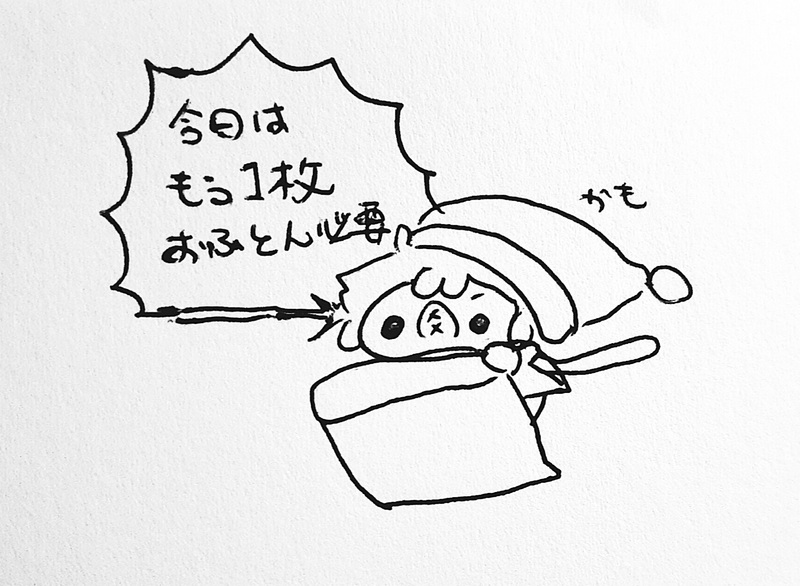 今日は
もう1枚
おふとん必要
かも